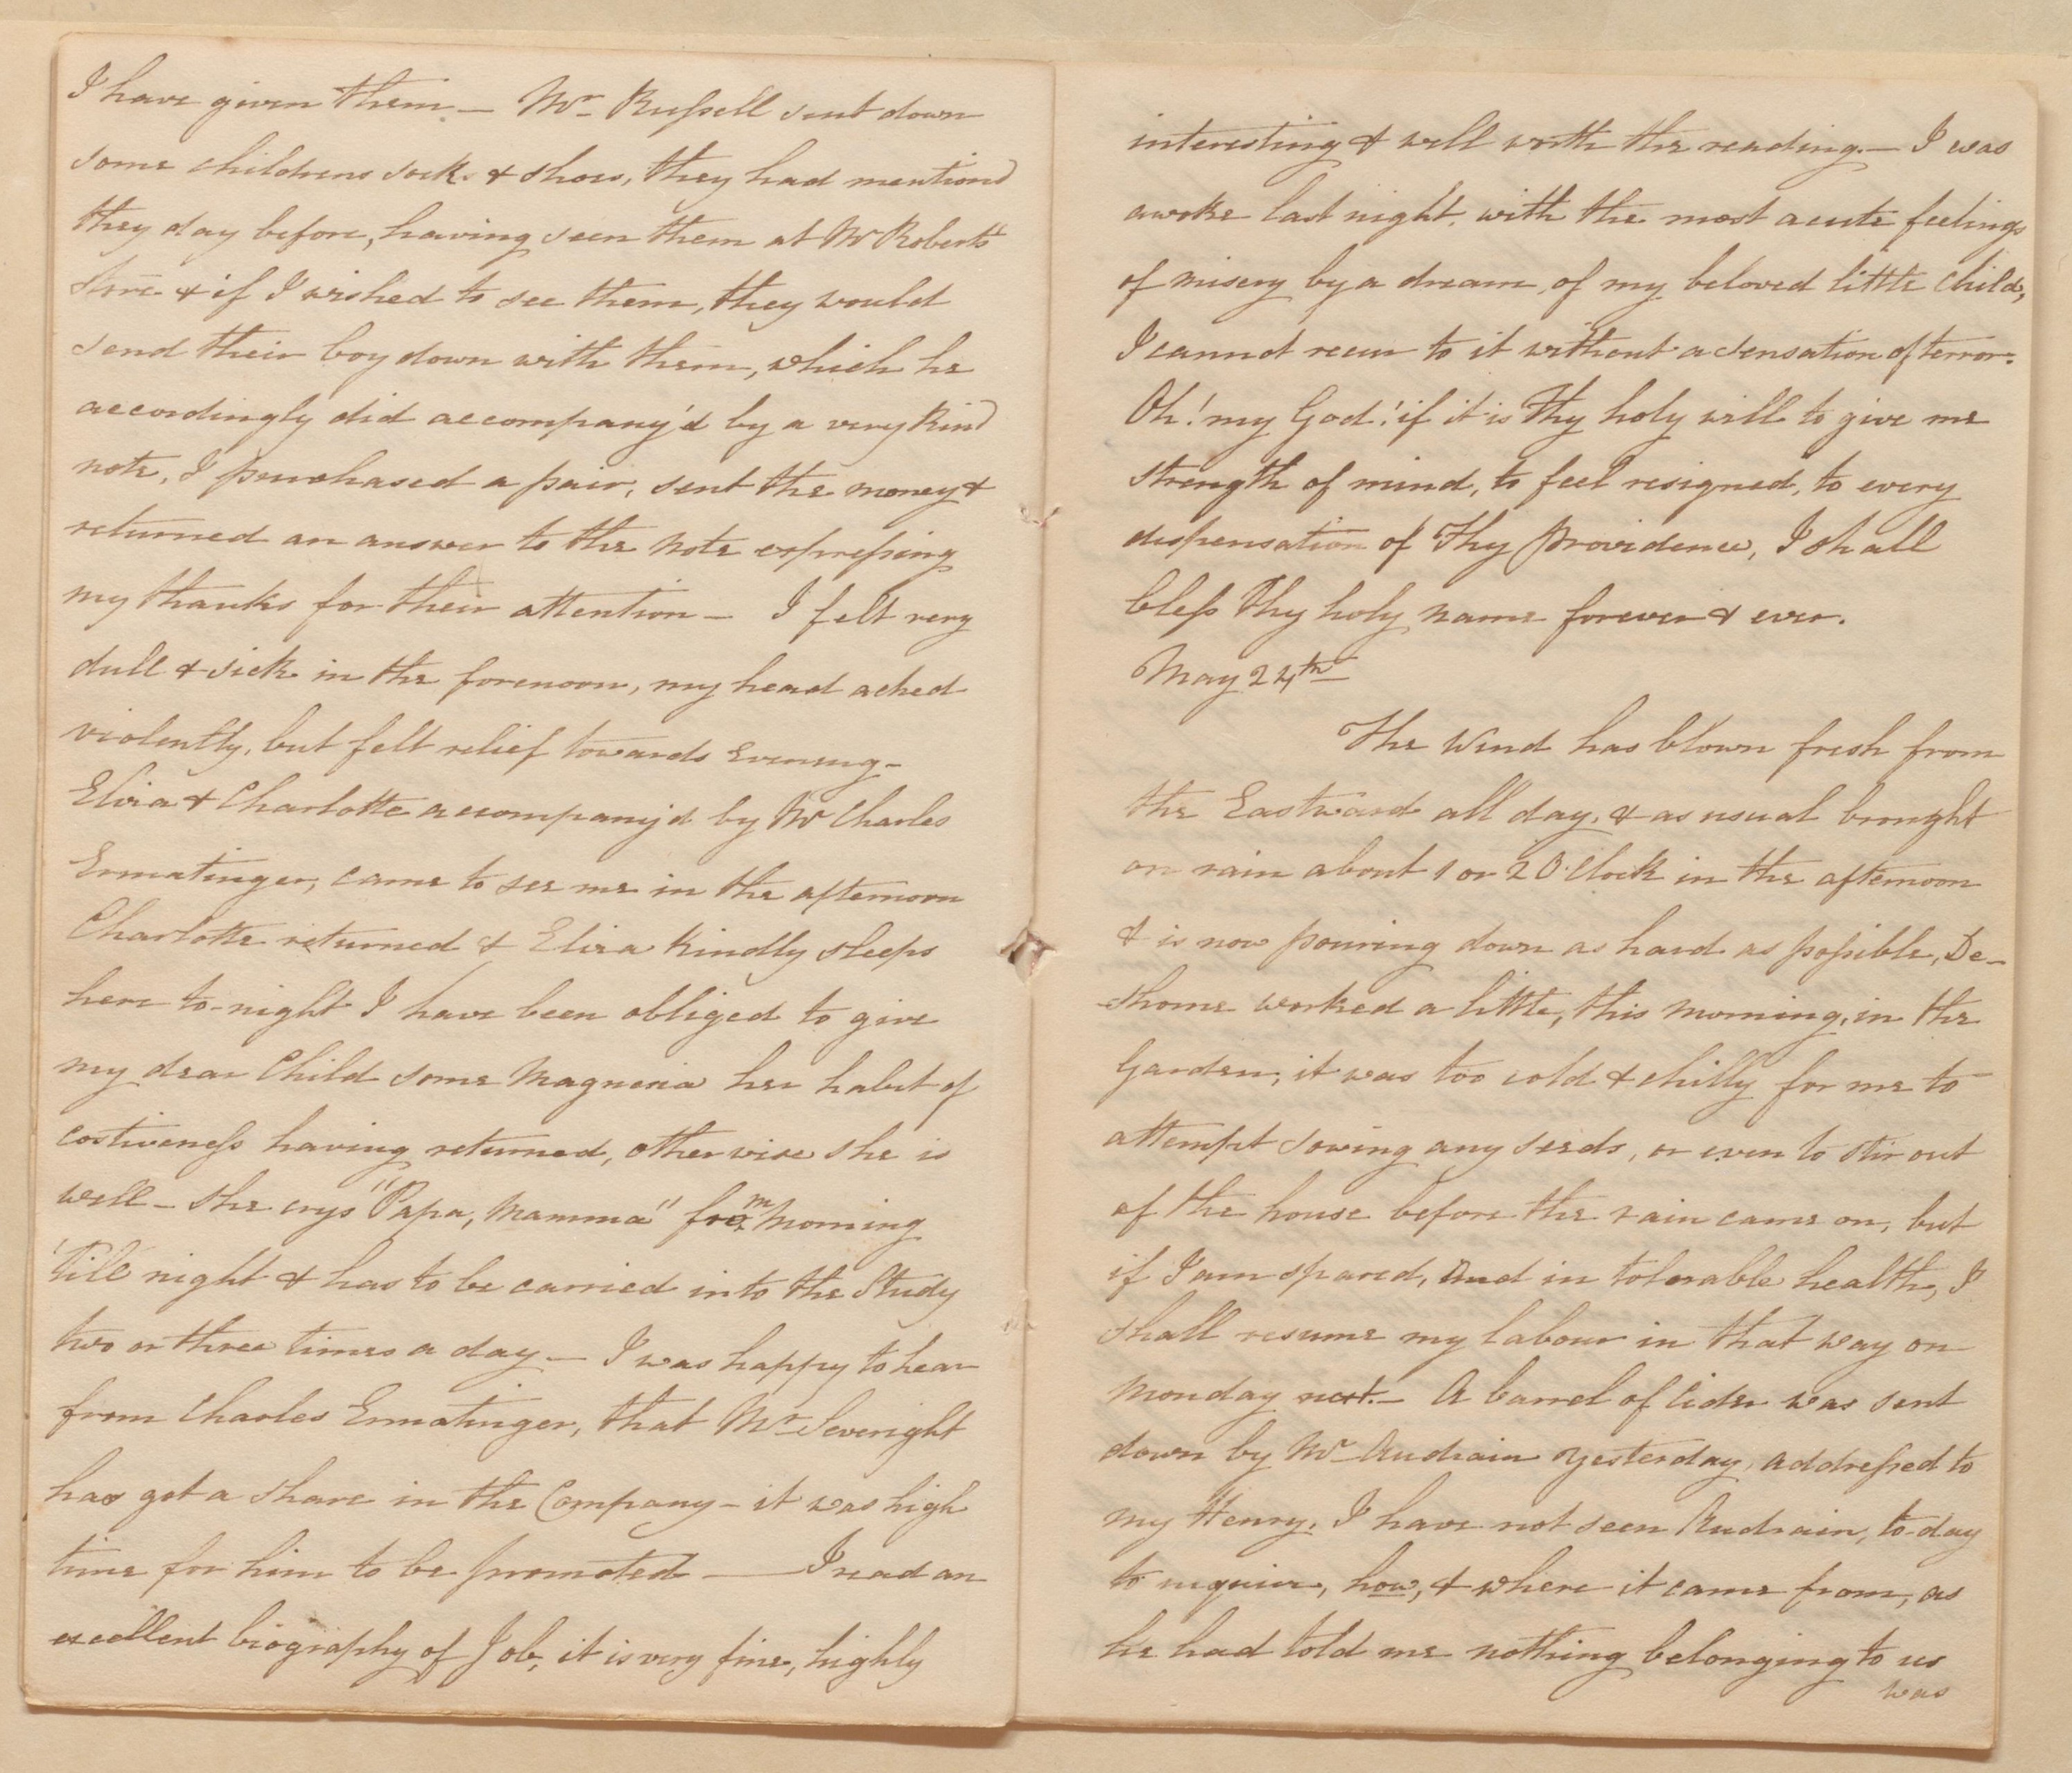 I have given them. — Mr Russell sent down
some childrens sock. & shoes, they had mentiond
they day before, having seen them at Mr Roberts
store & if I wished to see them, they would
send their boy down with them, which he
accordingly did accompany'd by a very kind
note, I purchased a pair, sent the money &
returned an answer to the note expressing
my thanks for their attention — I felt very
dull & sick in the forenoon, my head ached
violently, but felt relief towards Evening —
Eliza & Charlotte accompany'd by Mr Charles
Ermatinger, came to see me in the afternoon
Charlotte returned & Eliza kindly sleeps
here to-night I have been obliged to give
my dear Child some Magnesia her habit of
costiveness having returned, otherwise she is
well — she crys "Papa, Mamma" from Morning
'till night & has to be carried into the Study
two or three times a day — I was happy to hear
from Charles Ermatinger, that Mr Severight
has got a share in the Company — it was high
time for him to be promoted — I read an
excellent biography of Job, it is very fine, highly
interesting & well worth the reading. — I was
awoke last night, with the most acute feelings
of misery by a dream, of my beloved little Child,
I cannot recur to it without a sensation of terror.
Oh! my God! if it is Thy holy will to give me
strength of mind, to feel resigned, to every
dispensation of Thy Providence, I shall
bless Thy holy name forever & ever.
May 24th
The Wind has blown fresh from
the Eastward all day, & as usual brought
on rain about 1 or 2 O'Clock in the afternoon
& is now pouring down as hard as possible, De-
-shome worked a little, this morning, in the
Garden, it was too cold & chilly for me to
attempt sowing any seeds, or even to stir out
of the house before the rain came on, but
if I am spared, and in tolerable health, I
shall resume my labour in that way on
Monday next. — A barrel of Cider was sent
down by Mr Audrain yesterday, addressed to
my Henry. I have not seen Audrain, to-day
to inquire, how, & where it came from, as
he had told me nothing belonging to us
was